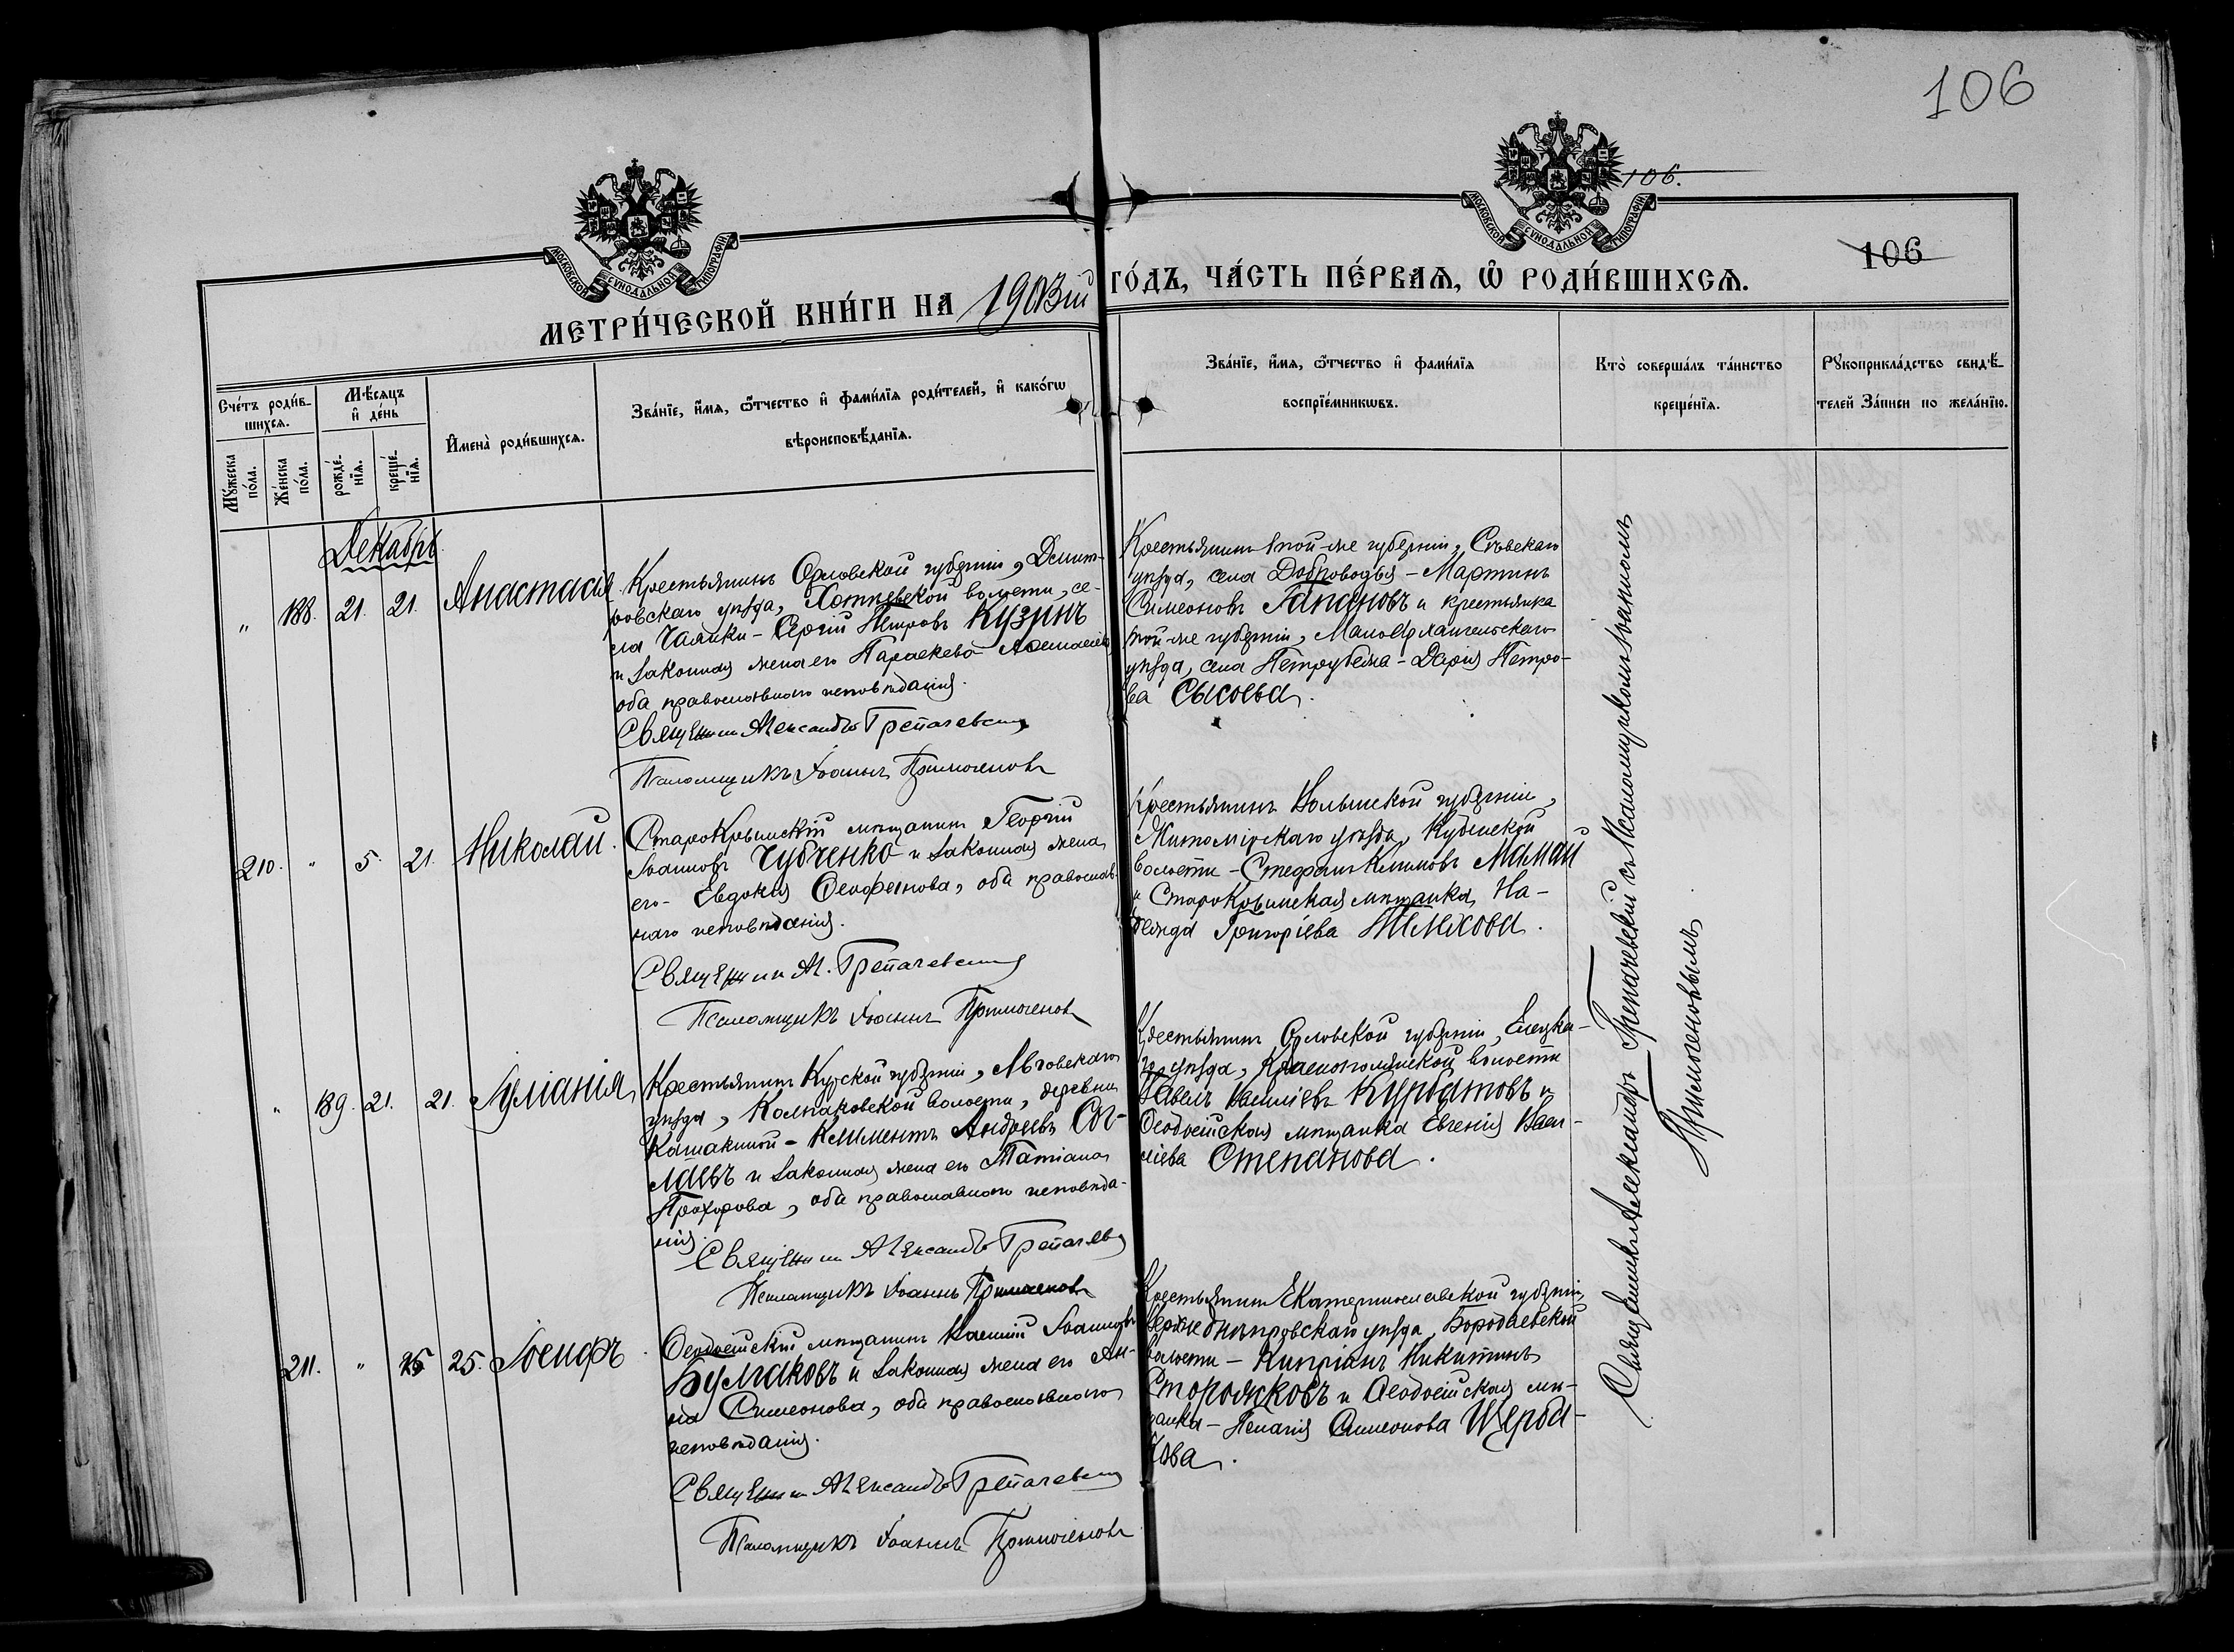 106
106.
106
МОСКОВСКОЙ СѴНОДАЛЬНОЙ ТИПОГРАФІИ
МОСКОВСКОЙ СѴНОДАЛЬНОЙ ТИПОГРАФІИ
МЕТРИ́ЧЕСКОЙ КНИ́ГИ НА 1903ій ГО́ДЪ, ЧА́СТЬ ПЕ́РВАѦ, Ѡ҆ РОДИ́ВШИХСѦ.
Сче́тъ роди́в-
шихсѧ.
Мѣ́сѧцъ
и҆ де́нь
Мꙋ́жеска
по́ла.
Же́нска
по́ла.
рожде́-
нїѧ.
креще́-
нїѧ.
И҆мена̀ роди́вшихсѧ.
Зва́нїе, и҆́мѧ, ѻ҆́тчество и҆ фами́лїѧ роди́телей, и҆ како́гѡ
вѣроисповѣ́данїѧ.
Зва́нїе, и҆́мѧ, ѻ҆́тчество и҆ фами́лїѧ
воспрїе́мникѡвъ.
Кто̀ соверша́лъ та́инство
креще́нїѧ.
Рꙋкоприкла́дство свидѣ́-
телей За́писи по жела́нїю.
Декабрь
„ 188. 21. 21. Анастасія
Крестьянинъ Орловской губерніи, Дмит-
ровскаго уѣзда, Хотѣевской волости, се-
ла Чаянки – Сергій Петровъ Кузинъ
и законная жена его Параскева
оба православнаго исповѣданія.
Священникъ Александръ Трепачевскій
Псаломщикъ Іоаннъ Примоченовъ
Крестьянинъ той-же губерніи, Сѣвскаго
уѣзда, села Доброводья – Мартинъ
Симеоновъ Гапоновъ и крестьянка
той-же губерніи, Малоархангельскаго
уѣзда, села – Дарія Петро-
ва Сысоева.
210. „ 5. 21. Николай.
СтароКрымскій мѣщанинъ Георгій
Іоанновъ Чубченко и законная жена
его – Евдокія Ѳеофанова, оба православ-
наго исповѣданія.
Священникъ Ал. Трепачевскій
Псаломщикъ Іоаннъ Примоченовъ
Крестьянинъ Волынской губерніи,
Житомірскаго уѣзда, Кутенской
волости – Стефанъ Климовъ Мамай
и СтароКрымская мѣщанка На-
дежда Григоріева Жилкова.
„ 189. 21. 21. Іуліанія
Крестьянинъ Курской губерніи, Льговскаго
уѣзда, Колпаковской волости, деревни
– Климентъ Андреевъ Сог-
лаевъ и законная жена его Татіана
Прохорова, оба православнаго исповѣда-
нія.
Священникъ Александръ Трепачевскій
Псаломщикъ Іоаннъ Примоченовъ
Крестьянинъ Орловской губерніи, Елецка-
го уѣзда, Краснополянской волости
Павелъ Василіевъ Курбатовъ и
Ѳеодосійская мѣщанка Евгенія Васи-
ліева Степанова.
211. „ 25 25. Іосифъ.
Ѳеодосійскій мѣщанинъ Василій Іоанновъ
Булгаковъ и законная жена его Ан-
на Симеонова, оба православнаго
исповѣданія.
Священникъ Александръ Трепачевскій
Псаломщикъ Іоаннъ Примоченовъ
Крестьянинъ Екатеринославской губерніи,
Верхнеднѣпровскаго уѣзда, Бородаевской
волости – Кипріанъ Никитинъ
Сторожковъ и Ѳеодосійская мѣ-
щанка – Пелагія Симеонова Щерба-
кова.
Священникъ Александръ Трепачевскій съ Псаломщикомъ Іоанномъ
Примоченовымъ